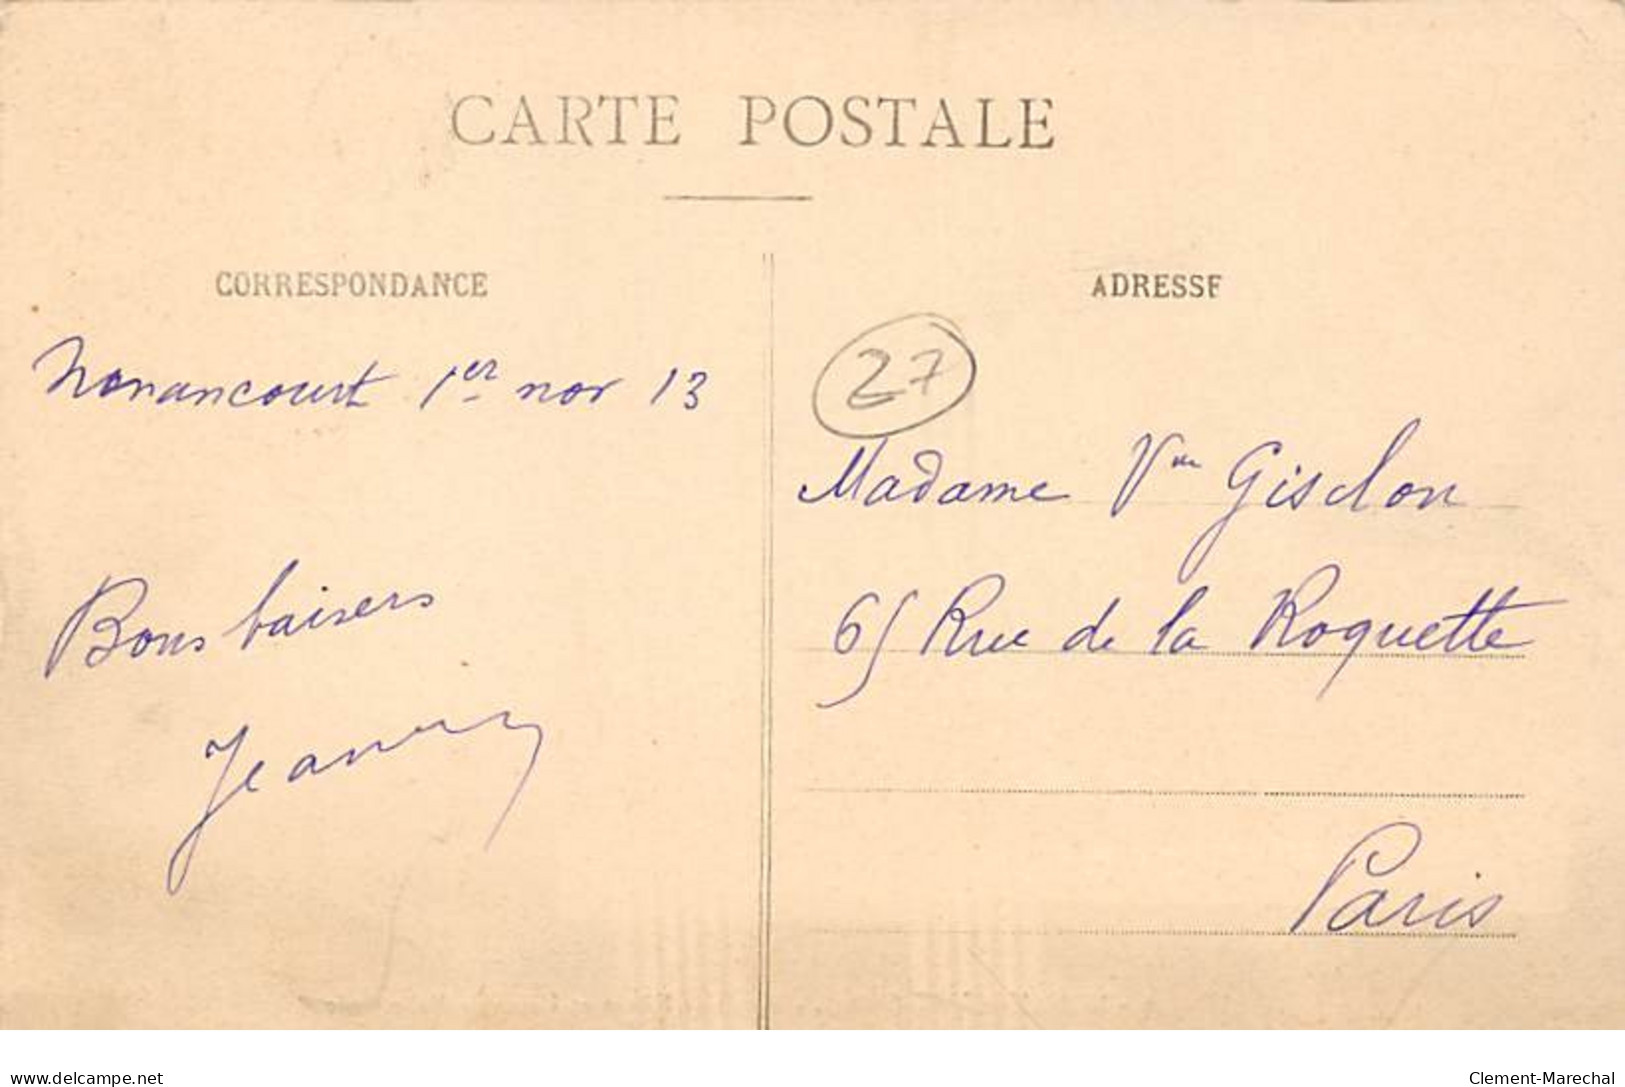 CARTE POSTALE
CORRESPONDANCE
Nonancourt 1er nov 13
Bons baisers
ADRESSE
27
Madame Vve
65 Rue de la Roquette
Paris
www.delcampe.net
Clement-Marechal